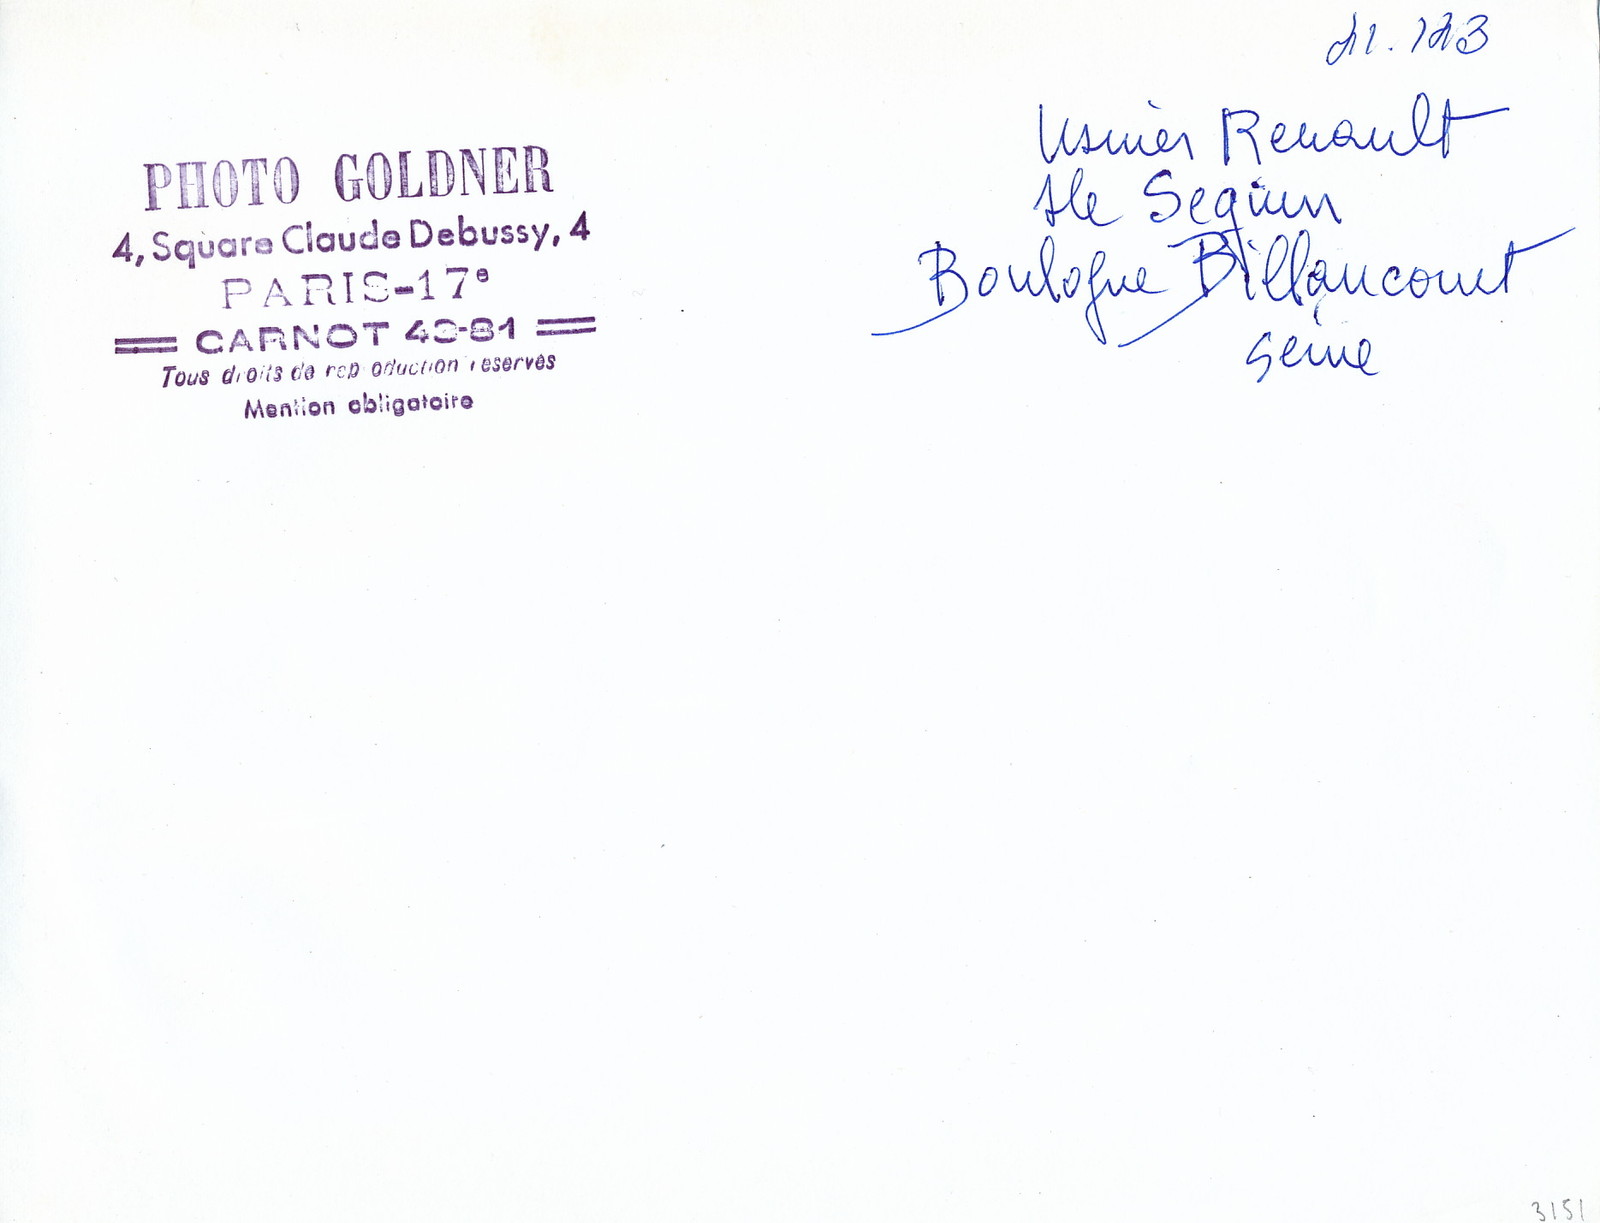 PHOTO GOLDNER
4, Square Claude Debussy, 4
PARIS-17e
CARNOT 43-81
Tous droits de reproduction réservés
Mention obligatoire
Usines Renault
Ile Seguin
Boulogne Billancourt
Seine
3151